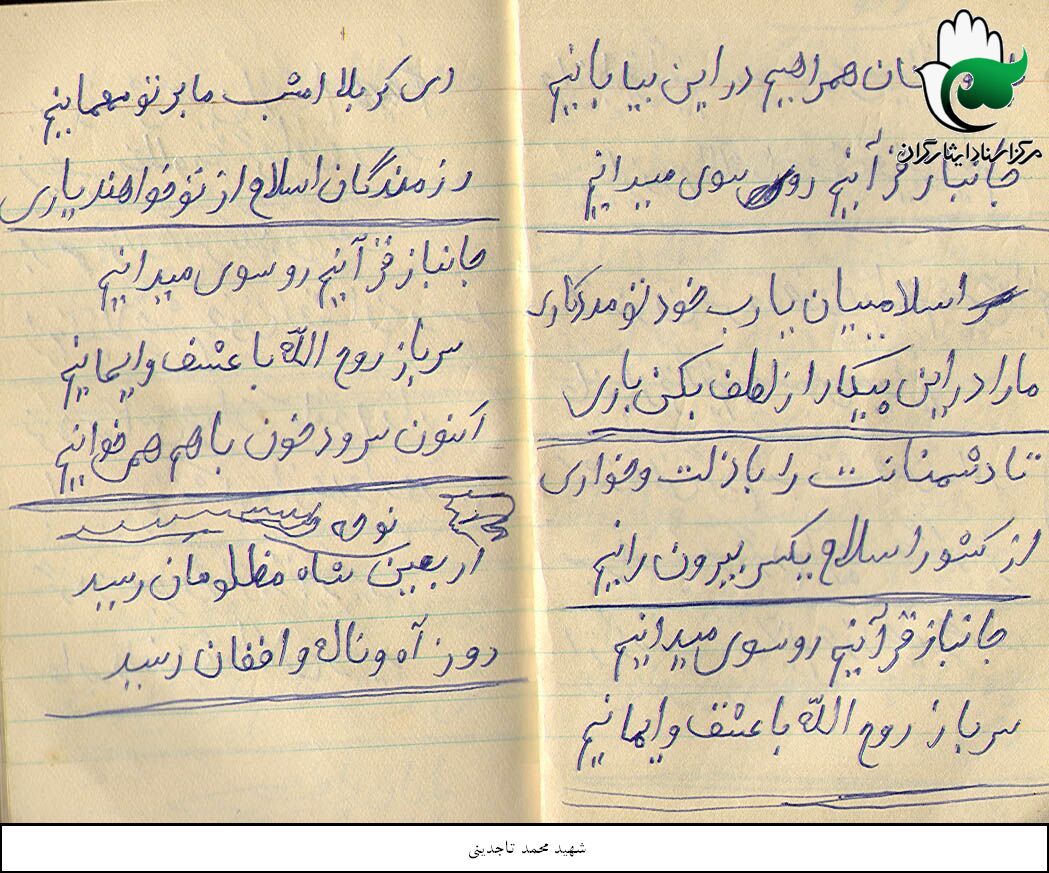 همراهیم در این بیابانیم
مرکز اسناد ایثارگران
جانباز قرآنیم رو سوی میدانیم
اسلامییان یارب خود تو مددکاری
ما را در این پیکار از لطف بکن یاری
تا دشمنانت را با ذلت و خواری
از کشور اسلام یکسر بیرون رانیم
جانباز قرآنیم رو سوی میدانیم
سرباز روح الله با عشق و ایمانیم
ای کربلا امشب ما بر تو مهمانیم
رزمندگان اسلام از تو خواهند یاری
جانباز قرآنیم رو سوی میدانیم
سرباز روح الله با عشق و ایمانیم
اکنون سرود خون با هم همی خوانیم
نوحه
اربعین شاه مظلومان رسید
روز آه و ناله و افغان رسید
شهید محمد تاجدینی